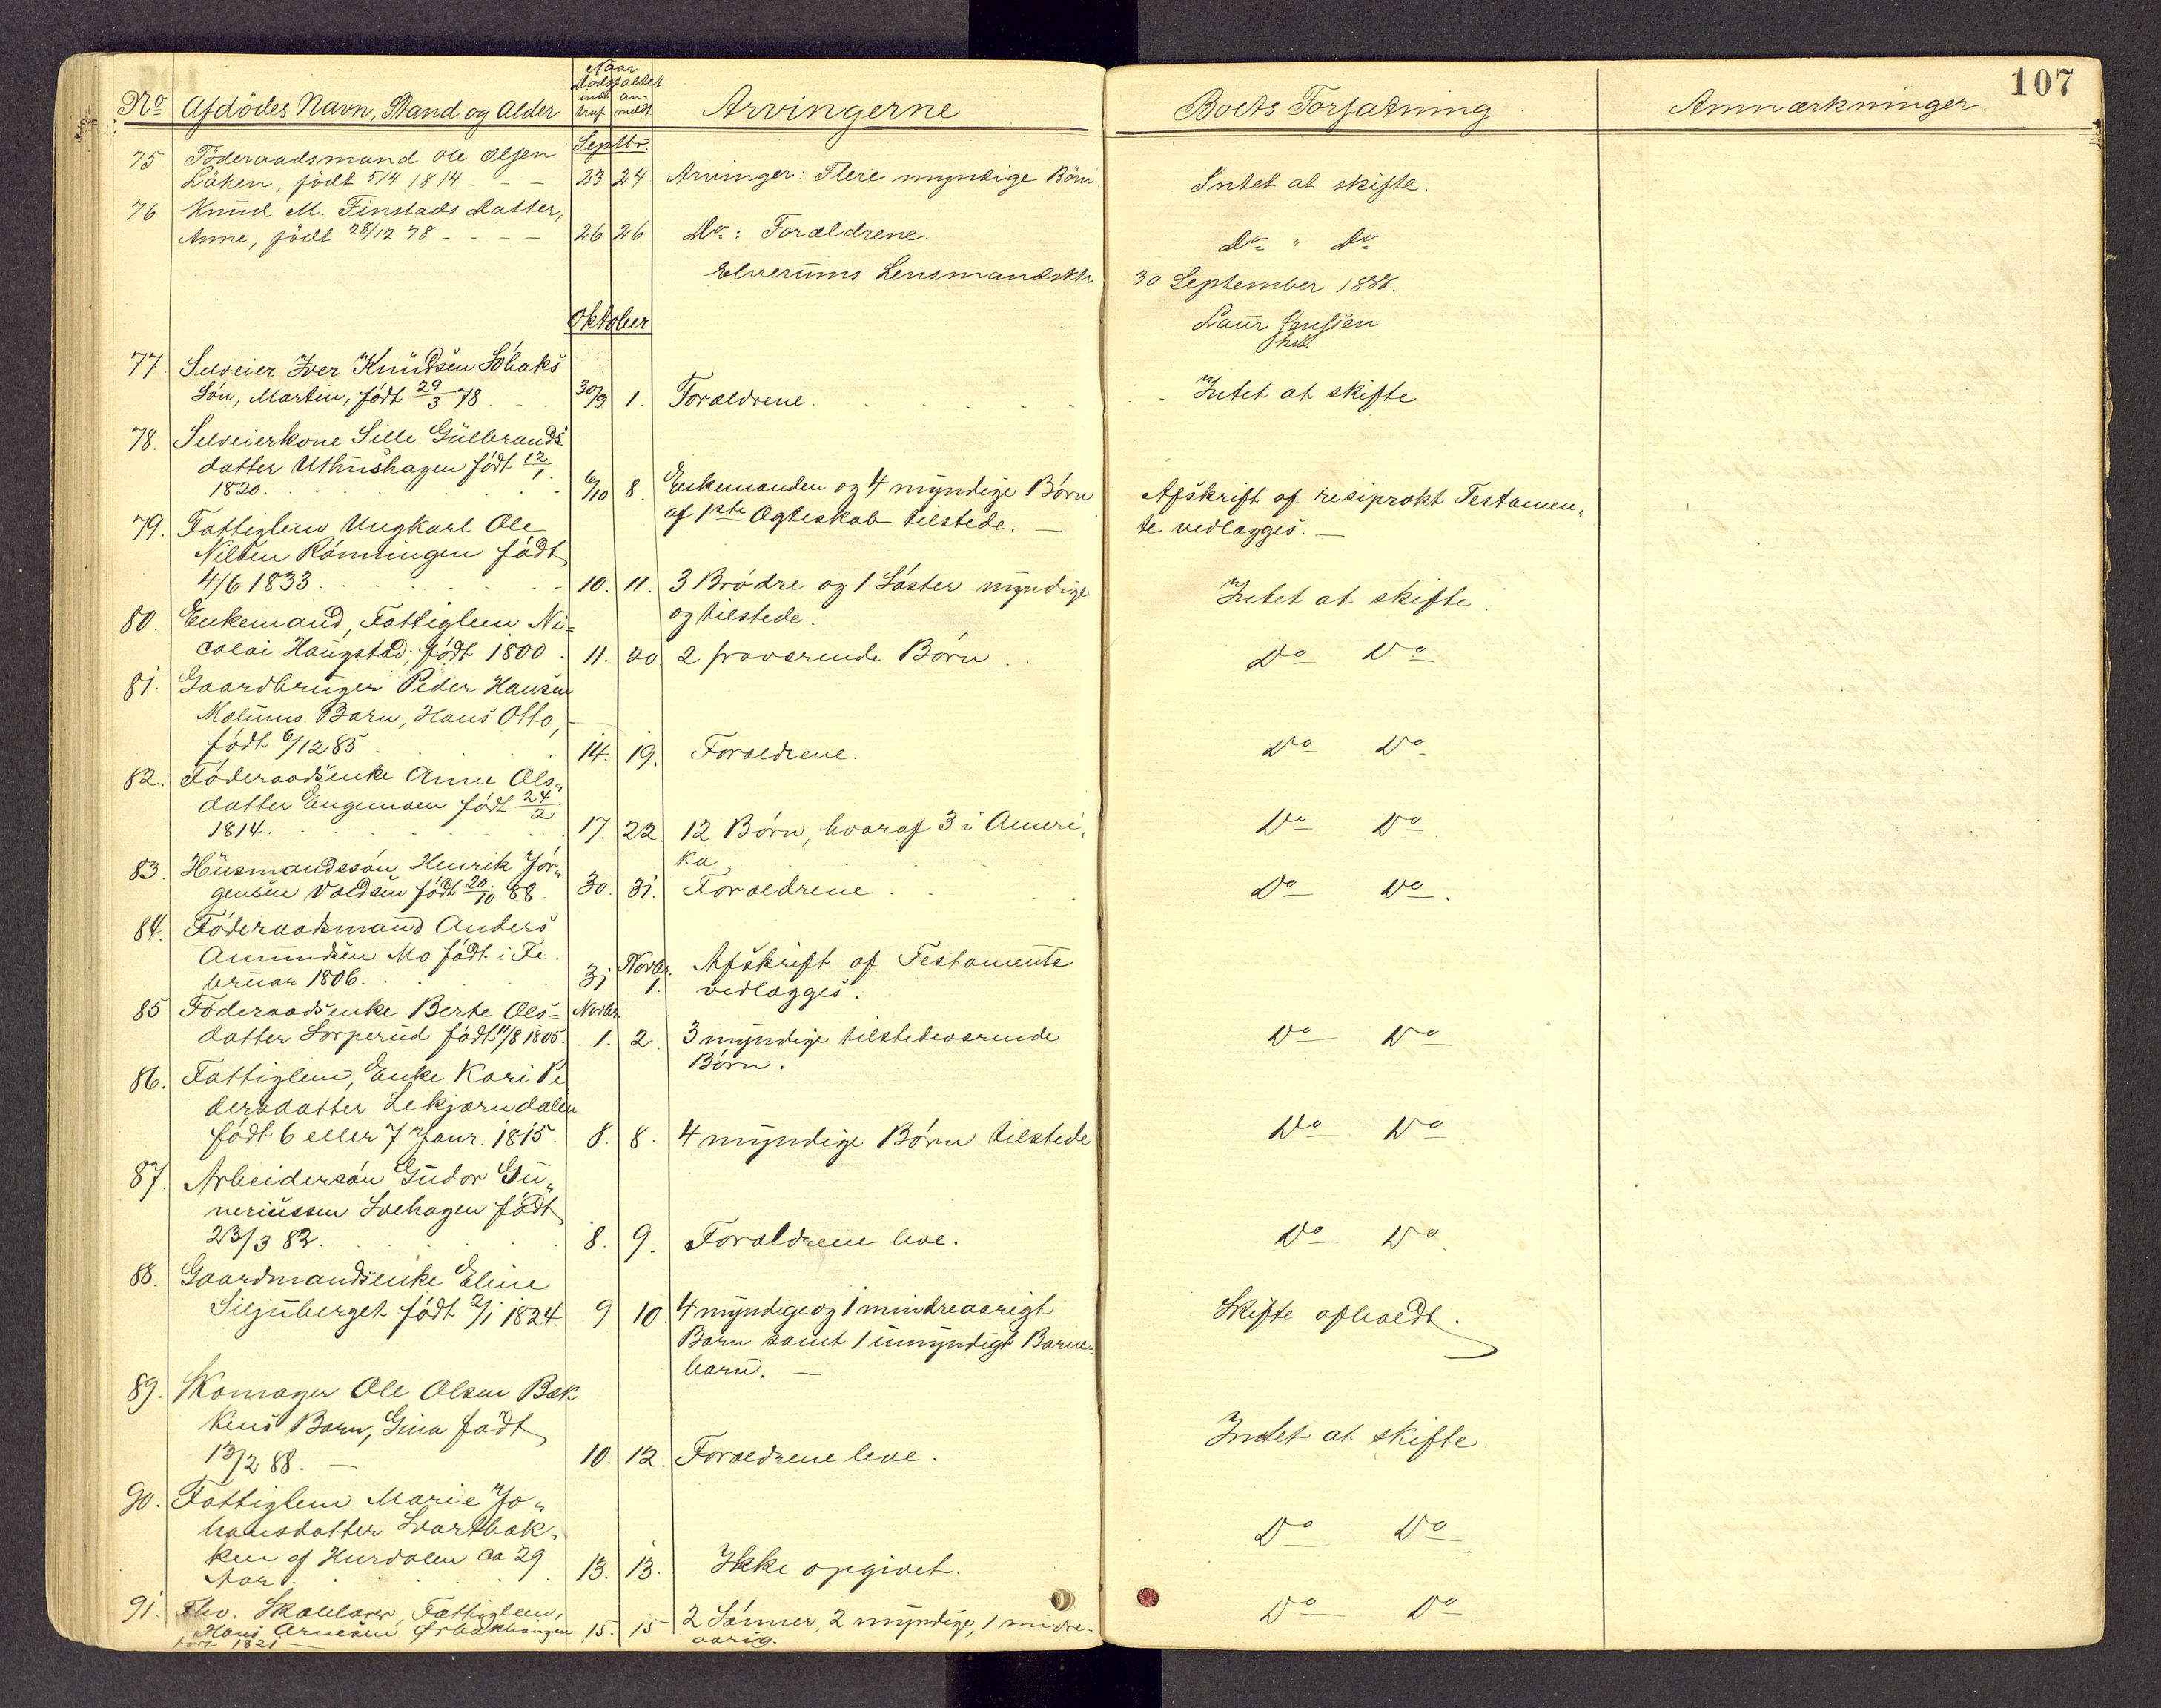 107
No Afdödes Navn, Stand og Alder Naar Dödsfaldet indtruf anmeldt Arvingerne Boets Forfatning Anmærkninger.
Septbr.
75 Föderaadsmand Ole Olsen
Låken, födt 5/4 1814 - - - 23 24 Arvinger: Flere myndige Börn. Intet at skifte.
76 Knud M. Finstads Datter,
Anne, födt 28/12 78 - - - - 26 26 Do: Forældrene. Do " Do
Elverums Lensmandsktr 30 September 1888.
Laur Jenssen
Oktober
77. Selveier Iver Knudsen Sóbaks
Són, Martin, fódt 29/3 78 30/9 1. Forældrene. Intet at skifte
78. Selveierkone Sille Gulbrands-
datter Uthushagen fódt 12/1
1820. 6/10 8. Enkemanden og 4 myndige Bórn Afskrift af resiprokt Testamen-
af 1ste Ægteskab tilstede. — te vedlægges. —
79. Fattiglem Ungkarl Ole
Nilsen Rónningen fódt
4/6 1833. 10. 11. 3 Bródre og 1 Sóster myndige Intet at skifte.
og tilstede.
80. Enkemand, Fattiglem Ni=
colai Haugstad, fódt 1800. 11. 20. 2 fraværende Bórn Do Do
81. Gaardbruger Peder Hansen
Mælums Barn, Hans Otto,
fódt 6/12 85. 14. 19. Forældrene. Do Do
82. Fóderaadsenke Anne Ols-
datter Engemoen fódt 24/2
1814. 17. 22. 12 Bórn, hvoraf 3 i Ameri-
ka Do Do
83. Husmandssón Henrik Jór-
gensen Voldsen fódt 20/10 88. 30. 31. Forældrene. Do Do.
84. Fóderaadsmand Anders
Amundsen Mo fódt i Fe-
bruar 1806. 31 Novbr. 1. Afskrift af Testamente
vedlægges.
85 Fóderaadsenke Berte Ols= Novbr.
datter Sorperud fódt 11/8 1805. 1. 2. 3 myndige tilstedeværende Do Do
Bórn.
86. Fattiglem, Enke Kari Pe
dersdatter Lekjærndalen
fódt 6 eller 7 Janr. 1815. 8. 8. 4 myndige Bórn tilstede Do Do.
87. Arbeidersón Gudor Gu-
neriussen Svehagen fódt
23/3 82. 8. 9. Forældrene leve. Do Do.
88. Gaardmandsenke Eline
Siljuberget fódt 2/1 1824. 9 10. 4 myndige og 1 mindreaarigt Skifte afholdt.
Barn samt 1 umyndigt Barne-
barn. —
89. Skomager Ole Olsen Bak
kens Barn, Gina fódt
13/2 88. — 10. 12. Forældrene leve. Intet at skifte.
90. Fattiglem Marie Jo-
hansdatter Svartbæk-
ken af Hurdalen ca 29
Aar. 13. 13. Ikke opgivet. Do Do
91. Fhv. Skolelærer, Fattiglem,
Hans Arnesen Ørbækhaugen 15. 15 2 Sónner, 2 myndige, 1 mindre- Do Do
fódt 1821 — aarig.